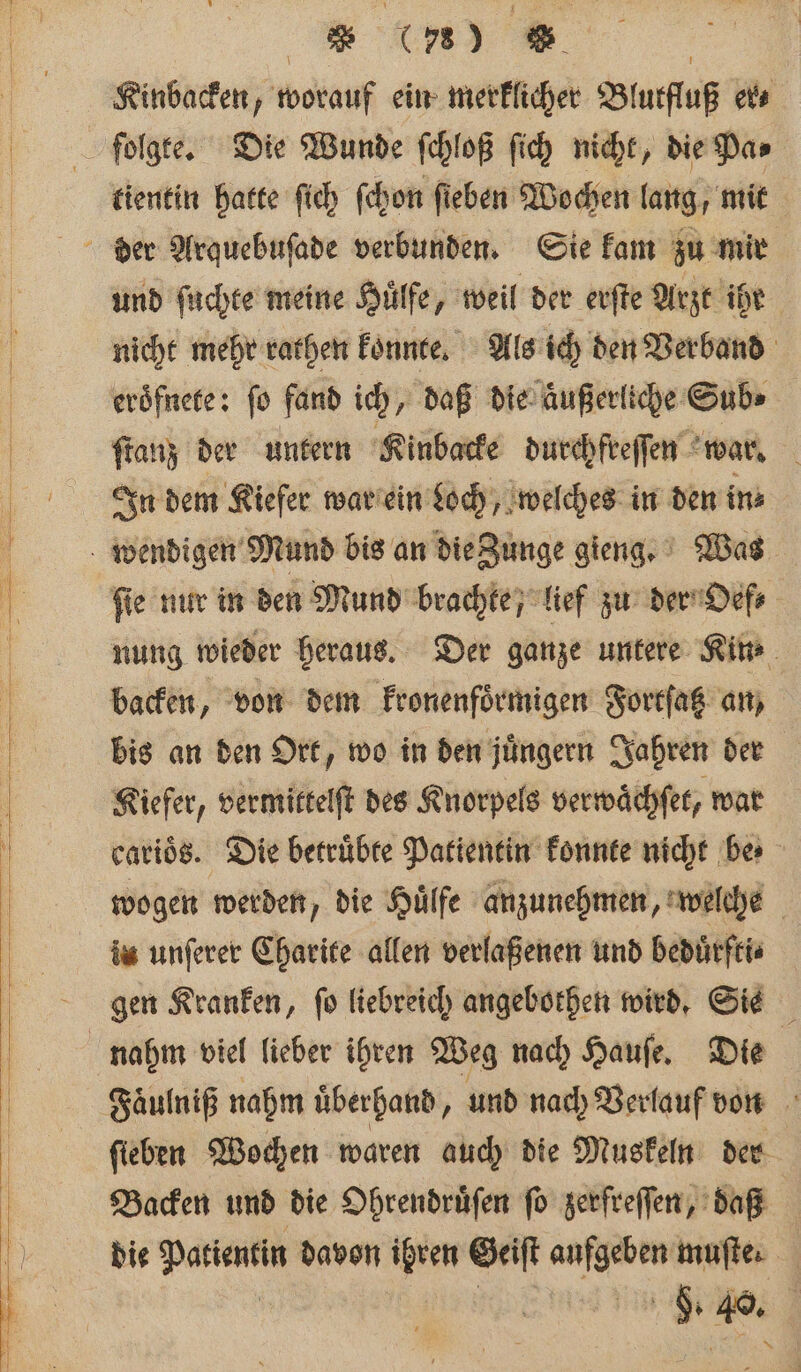 ❀ (78) ❀
Kinbacken, worauf ein merklicher Blutfluß er⸗
folgte. Die Wunde ſchloß ſich nicht, die Pa⸗
tientin hatte ſich ſchon ſieben Wochen lang, mit
der Arquebuſade verbunden. Sie kam zu mir
und ſuchte meine Huͤlfe, weil der erſte Arzt ihr
nicht mehr rathen konnte. Als ich den Verband
eroͤfnete: ſo fand ich, daß die aͤußerliche Sub⸗
ſtanz der untern Kinbacke durchfreſſen war.
In dem Kiefer war ein Loch, welches in den in⸗
wendigen Mund bis an die Zunge gieng. Was
ſie nur in den Mund brachte, lief zu der Oef⸗
nung wieder heraus. Der ganze untere Kin⸗
backen, von dem kronenfoͤrmigen Fortſatz an,
bis an den Ort, wo in den juͤngern Jahren der
Kiefer, vermittelſt des Knorpels verwaͤchſet, war
carioͤs. Die betruͤbte Patientin konnte nicht be⸗
wogen werden, die Huͤlfe anzunehmen, welche
in unſerer Charite allen verlaßenen und beduͤrfti⸗
gen Kranken, ſo liebreich angebothen wird. Sie
nahm viel lieber ihren Weg nach Hauſe. Die
Faͤulniß nahm uͤberhand, und nach Verlauf von
ſieben Wochen waren auch die Muskeln der
Backen und die Ohrendruͤſen ſo zerfreſſen, daß
die Patientin davon ihren Geiſt aufgeben muſte.
§. 40.